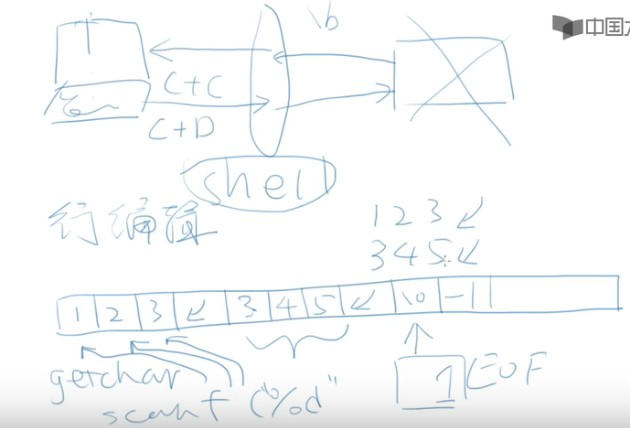 中国大
\b
C+C
C+D
shell
行编辑
123↙
345↙
1 2 3 ↙ 3 4 5 ↙ \0 -1
getchar
scanf("%d"
1 EOF